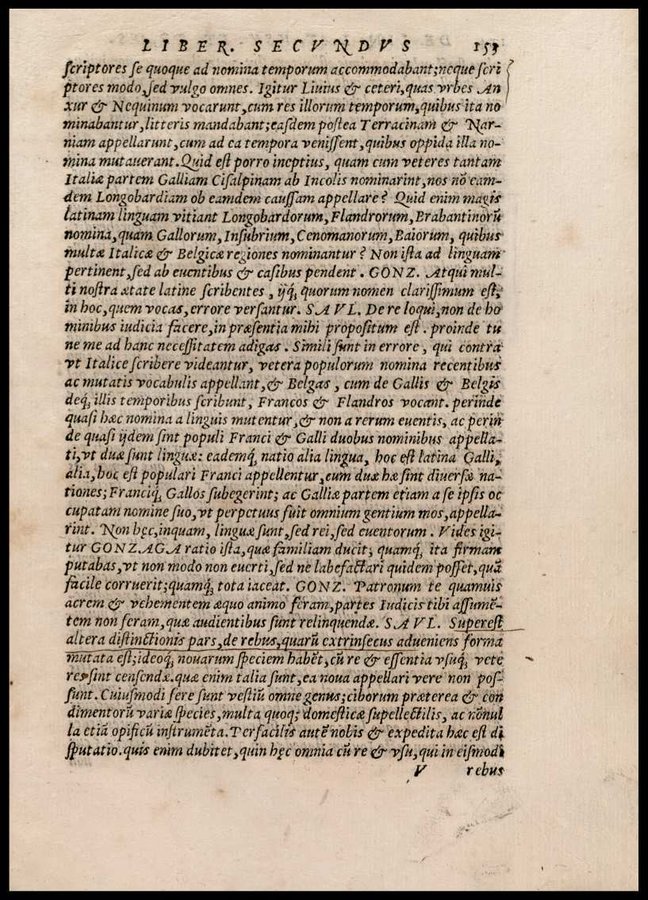 LIBER. SECVNDVS 153
scriptores se quoque ad nomina temporum accommodabant; neque scri
ptores modo, sed vulgo omnes. Igitur Liuius & ceteri, quas vrbes An
xur & Nequinum vocarunt, cum res illorum temporum, quibus ita no
minabantur, litteris mandabant; easdem postea Terracinam & Nar-
niam appellarunt, cum ad ea tempora venissent, quibus oppida illa no-
mina mutauerant. Quid est porro ineptius, quam cum veteres tantam
Italiæ partem Galliam Cisalpinam ab Incolis nominarint, nos nõ eam-
dem Longobardiam ob eamdem caussam appellare? Quid enim magis
latinam linguam vitiant Longobardorum, Flandrorum, Brabantinorũ
nomina, quam Gallorum, Insubrium, Cenomanorum, Baiorum, quibus
multæ Italicæ & Belgicæ regiones nominantur? Non ista ad linguam
pertinent, sed ab euentibus & casibus pendent. GONZ. Atqui mul-
ti nostra ætate latine scribentes, ijq́, quorum nomen clarissimum est,
in hoc, quem vocas, errore versantur. SAVL. De re loqui, non de ho
minibus iudicia facere, in præsentia mihi propositum est. proinde tu
ne me ad hanc necessitatem adigas. Simili sunt in errore, qui contra
vt Italice scribere videantur, vetera populorum nomina recentibus
ac mutatis vocabulis appellant, & Belgas, cum de Gallis & Belgis
deq́, illis temporibus scribunt, Francos & Flandros vocant. perinde
quasi hæc nomina a linguis mutentur, & non a rerum euentis, ac perin
de quasi ijdem sint populi Franci & Galli duobus nominibus appella-
ti, vt duæ sunt linguæ: eademq́, natio alia lingua, hoc est latina Galli,
alia, hoc est populari Franci appellentur, cum duæ hæ sint diuersæ na-
tiones; Franciq́, Gallos subegerint; ac Galliæ partem etiam a se ipsis oc
cupatam nomine suo, vt perpetuus fuit omnium gentium mos, appella-
rint. Non hęc, inquam, linguæ sunt, sed rei, sed euentorum. Vides igi-
tur GONZAGA ratio ista, quæ familiam ducit; quamq́, ita firmam
putabas, vt non modo non euerti, sed ne labefactari quidem posset, quã
facile corruerit; quamq́, tota iaceat. GONZ. Patronum te quamuis
acrem & vehementem æquo animo feram, partes Iudicis tibi assumẽ-
tem non feram, quæ audientibus sunt relinquendæ. SAVL. Superest
altera distinctionis pars, de rebus, quarũ extrinsecus adueniens forma
mutata est; ideoq́, nouarum speciem habẽt, cũ re & essentia vsuq́, vete
res sint censendæ. quæ enim talia sunt, ea noua appellari vere non pos-
sunt. Cuiusmodi fere sunt vestiũ omne genus; ciborum præterea & con
dimentorũ variæ species, multa quoq; domesticæ supellectilis, ac nõnul
la etiã opificũ instrumẽta. Perfacilis autẽ nobis & expedita hæc est di
sputatio. quis enim dubitet, quin hęc omnia cũ re & vsu, qui in eismodi
V rebus